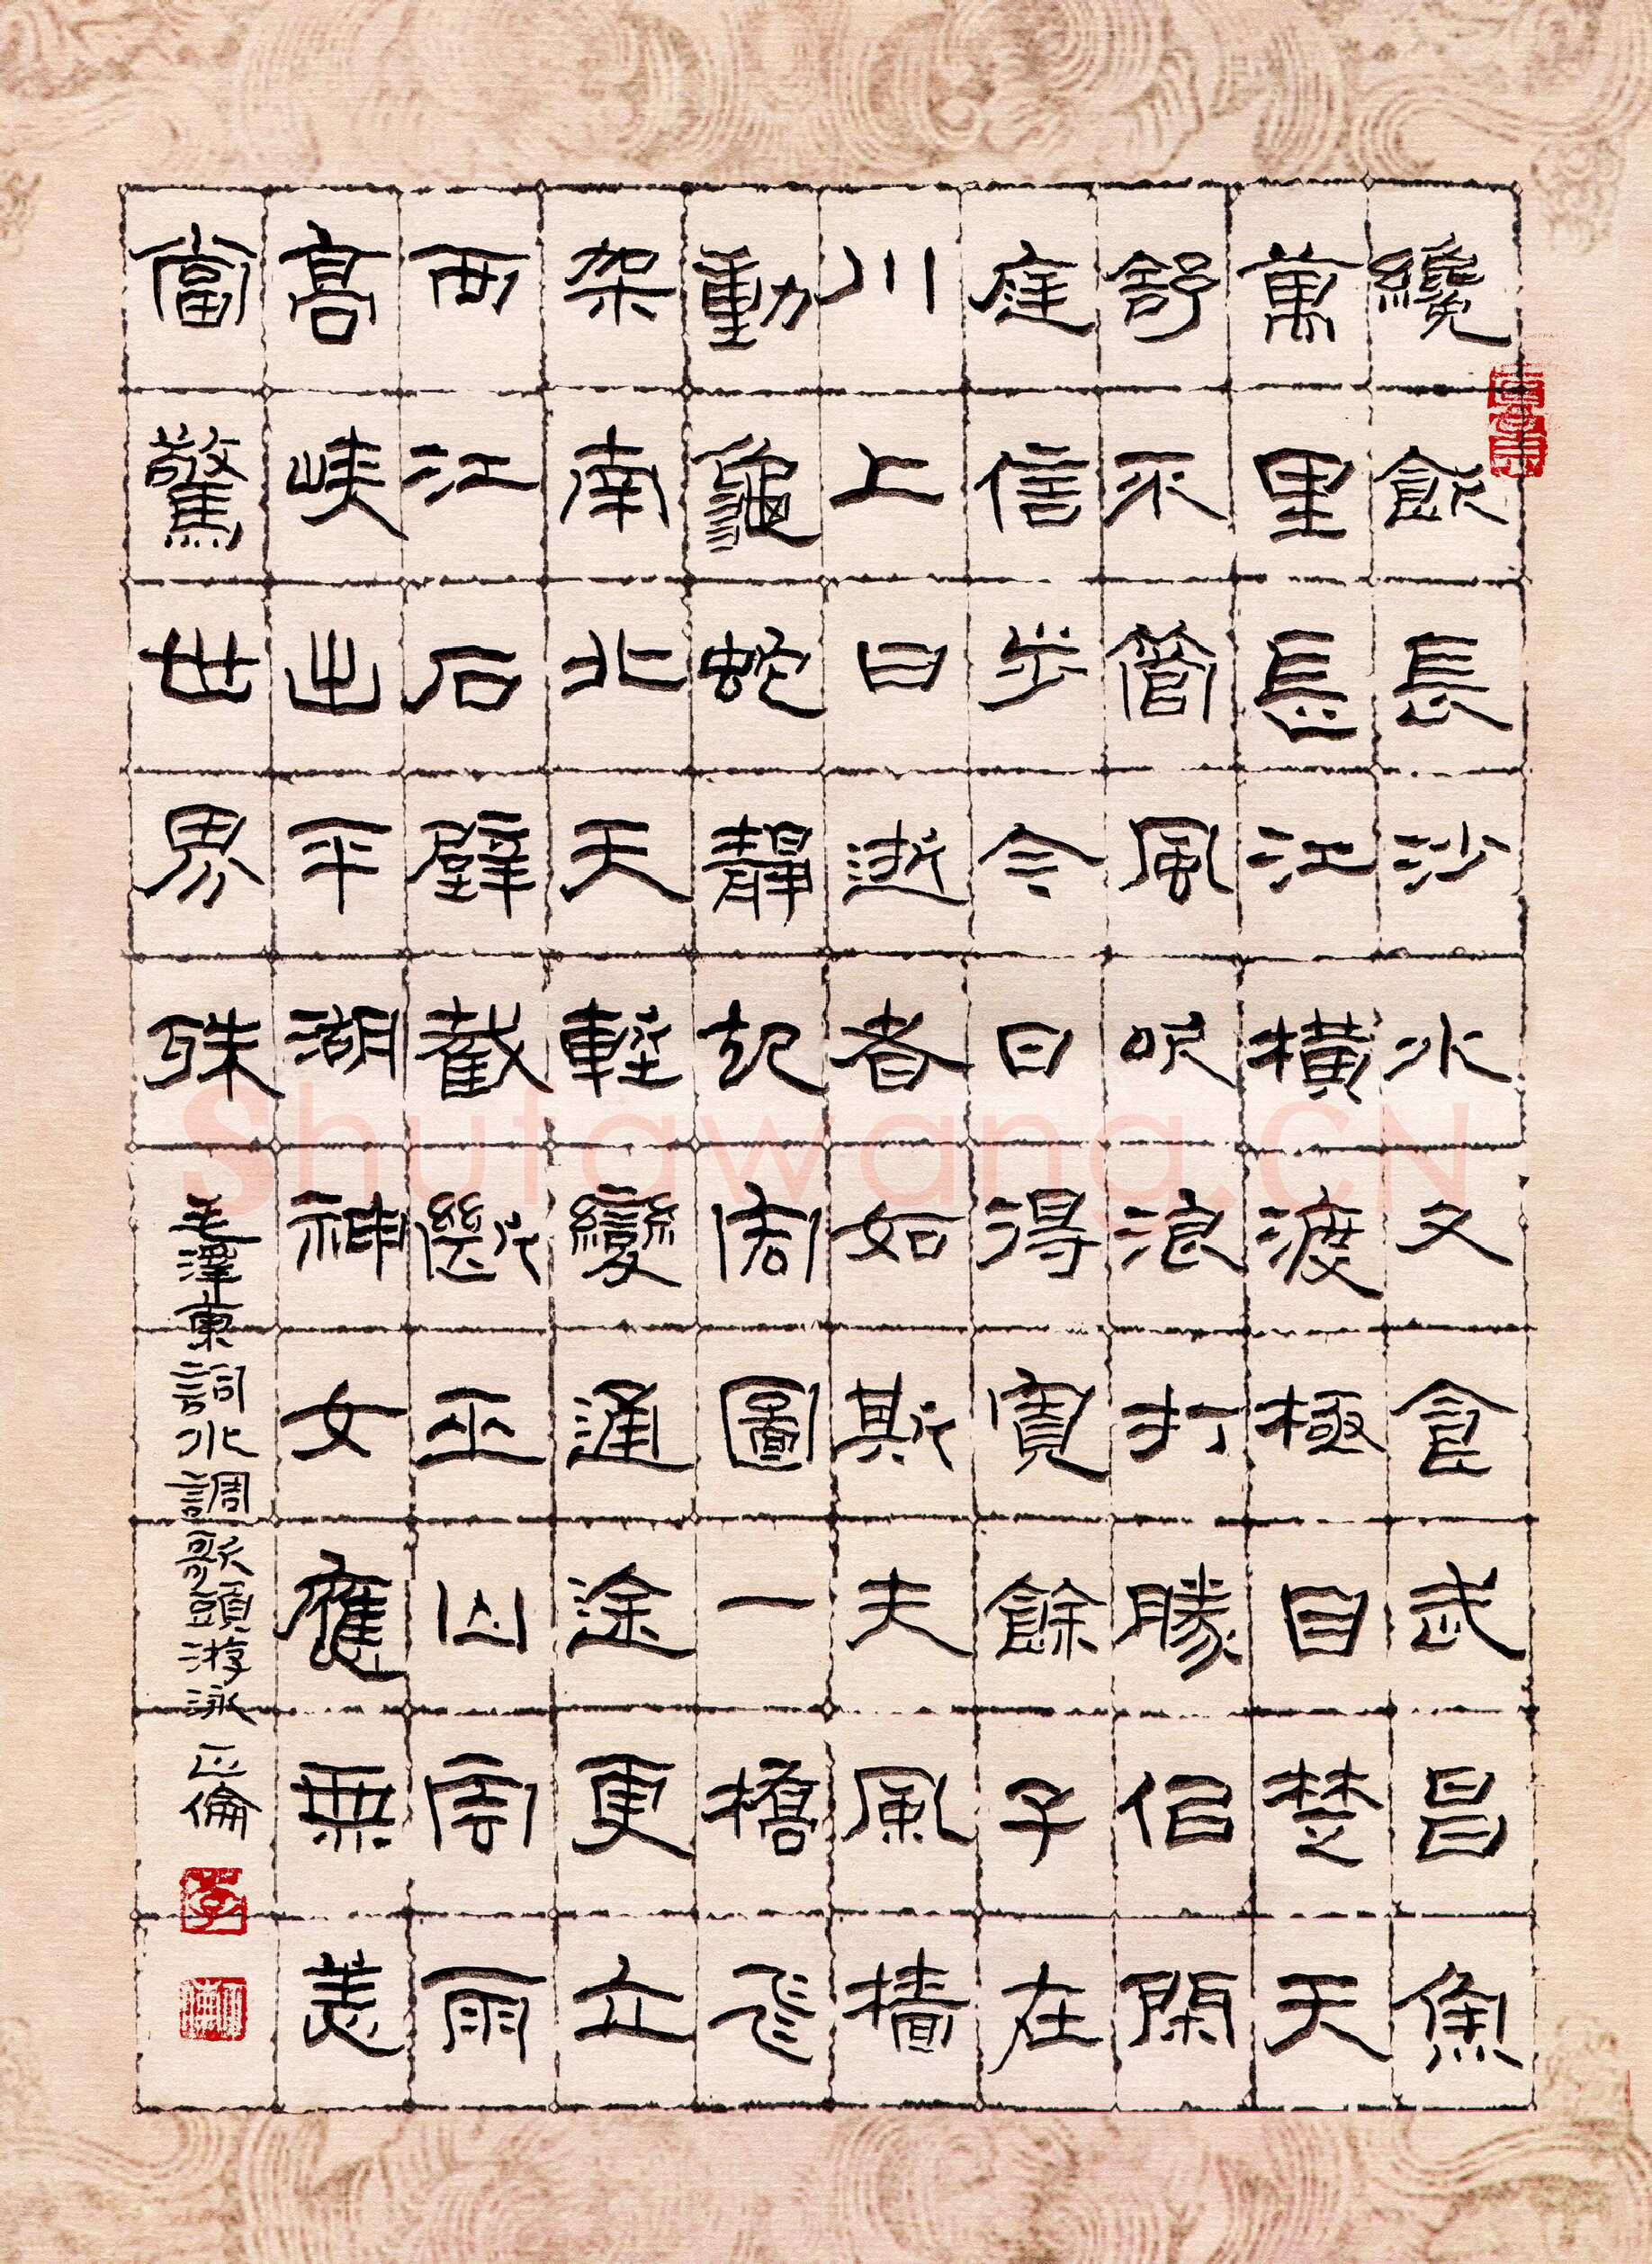 纔飲長沙水又食武昌魚
萬里長江橫渡極目楚天
舒不管風吹浪打勝佀閑
庭信步今日得寬餘子在
川上曰逝者如斯夫風檣
動龜蛇靜起宏圖一橋飛
架南北天塹變通途更立
西江石壁截斷巫山雲雨
高峽出平湖神女應無恙
當驚世界殊
毛澤東詞水調歌頭游泳 正倫
Shufawang.CN